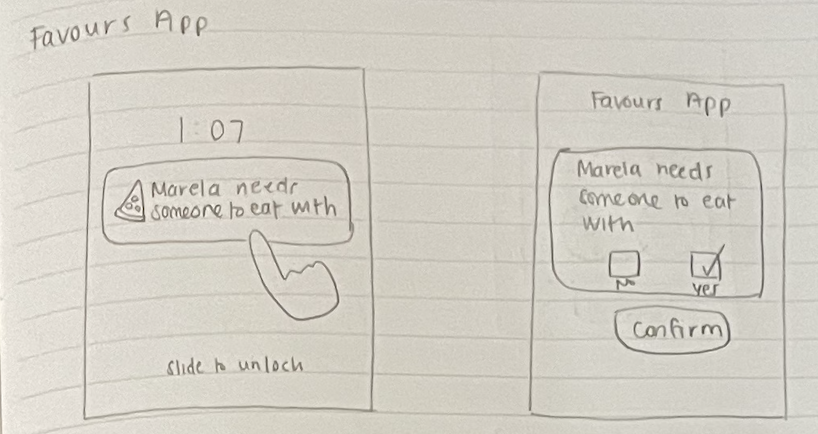 Favours App
1:07
Marela needs
someone to eat with
slide to unlock
Favours App
Marela needs
someone to eat
with
No
yes
Confirm